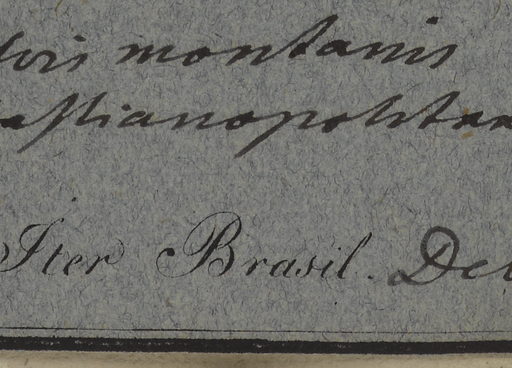 lvis montanis
astianopolitan
Iter Brasil. Dec